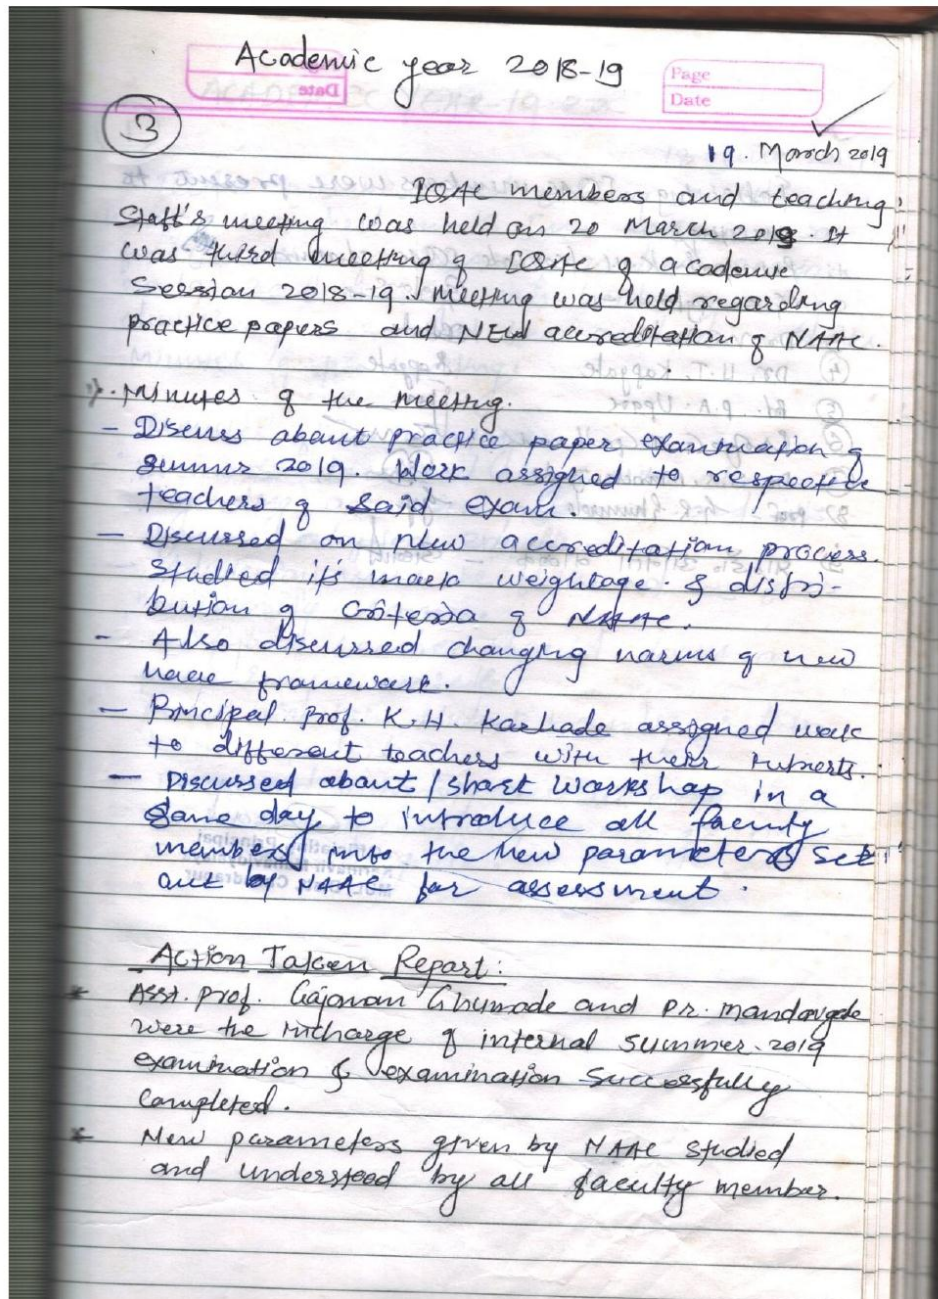 Academic year 2018-19
Page
Date
3
19. March 2019
IQAC members and teaching
staff's meeting was held on 20 March 2019. It
was third meeting of IQAC of academic
Session 2018-19. meeting was held regarding
practice papers and NEW accreditation of NAAC.
Minutes of the meeting.
- Discuss about practice paper examination of
summer 2019. Work assigned to respective
teachers of said exam.
- Discussed on new accreditation process.
studied its mark weightage & distri-
bution of criteria of NAAC.
- Also discussed changing norms of new
naac framework.
- Principal Prof. K.H. Karhade assigned work
to different teachers with their
- Discussed about short workshop in a
same day to introduce all faculty
members into the new parameters set
out by NAAC for assessment.
Action Taken Report:
* Asst. prof. Gajanan Ghumade and
were the incharge of internal summer-2019
examination & examination successfully
completed.
* New parameters given by NAAC studied
and understood by all faculty member.